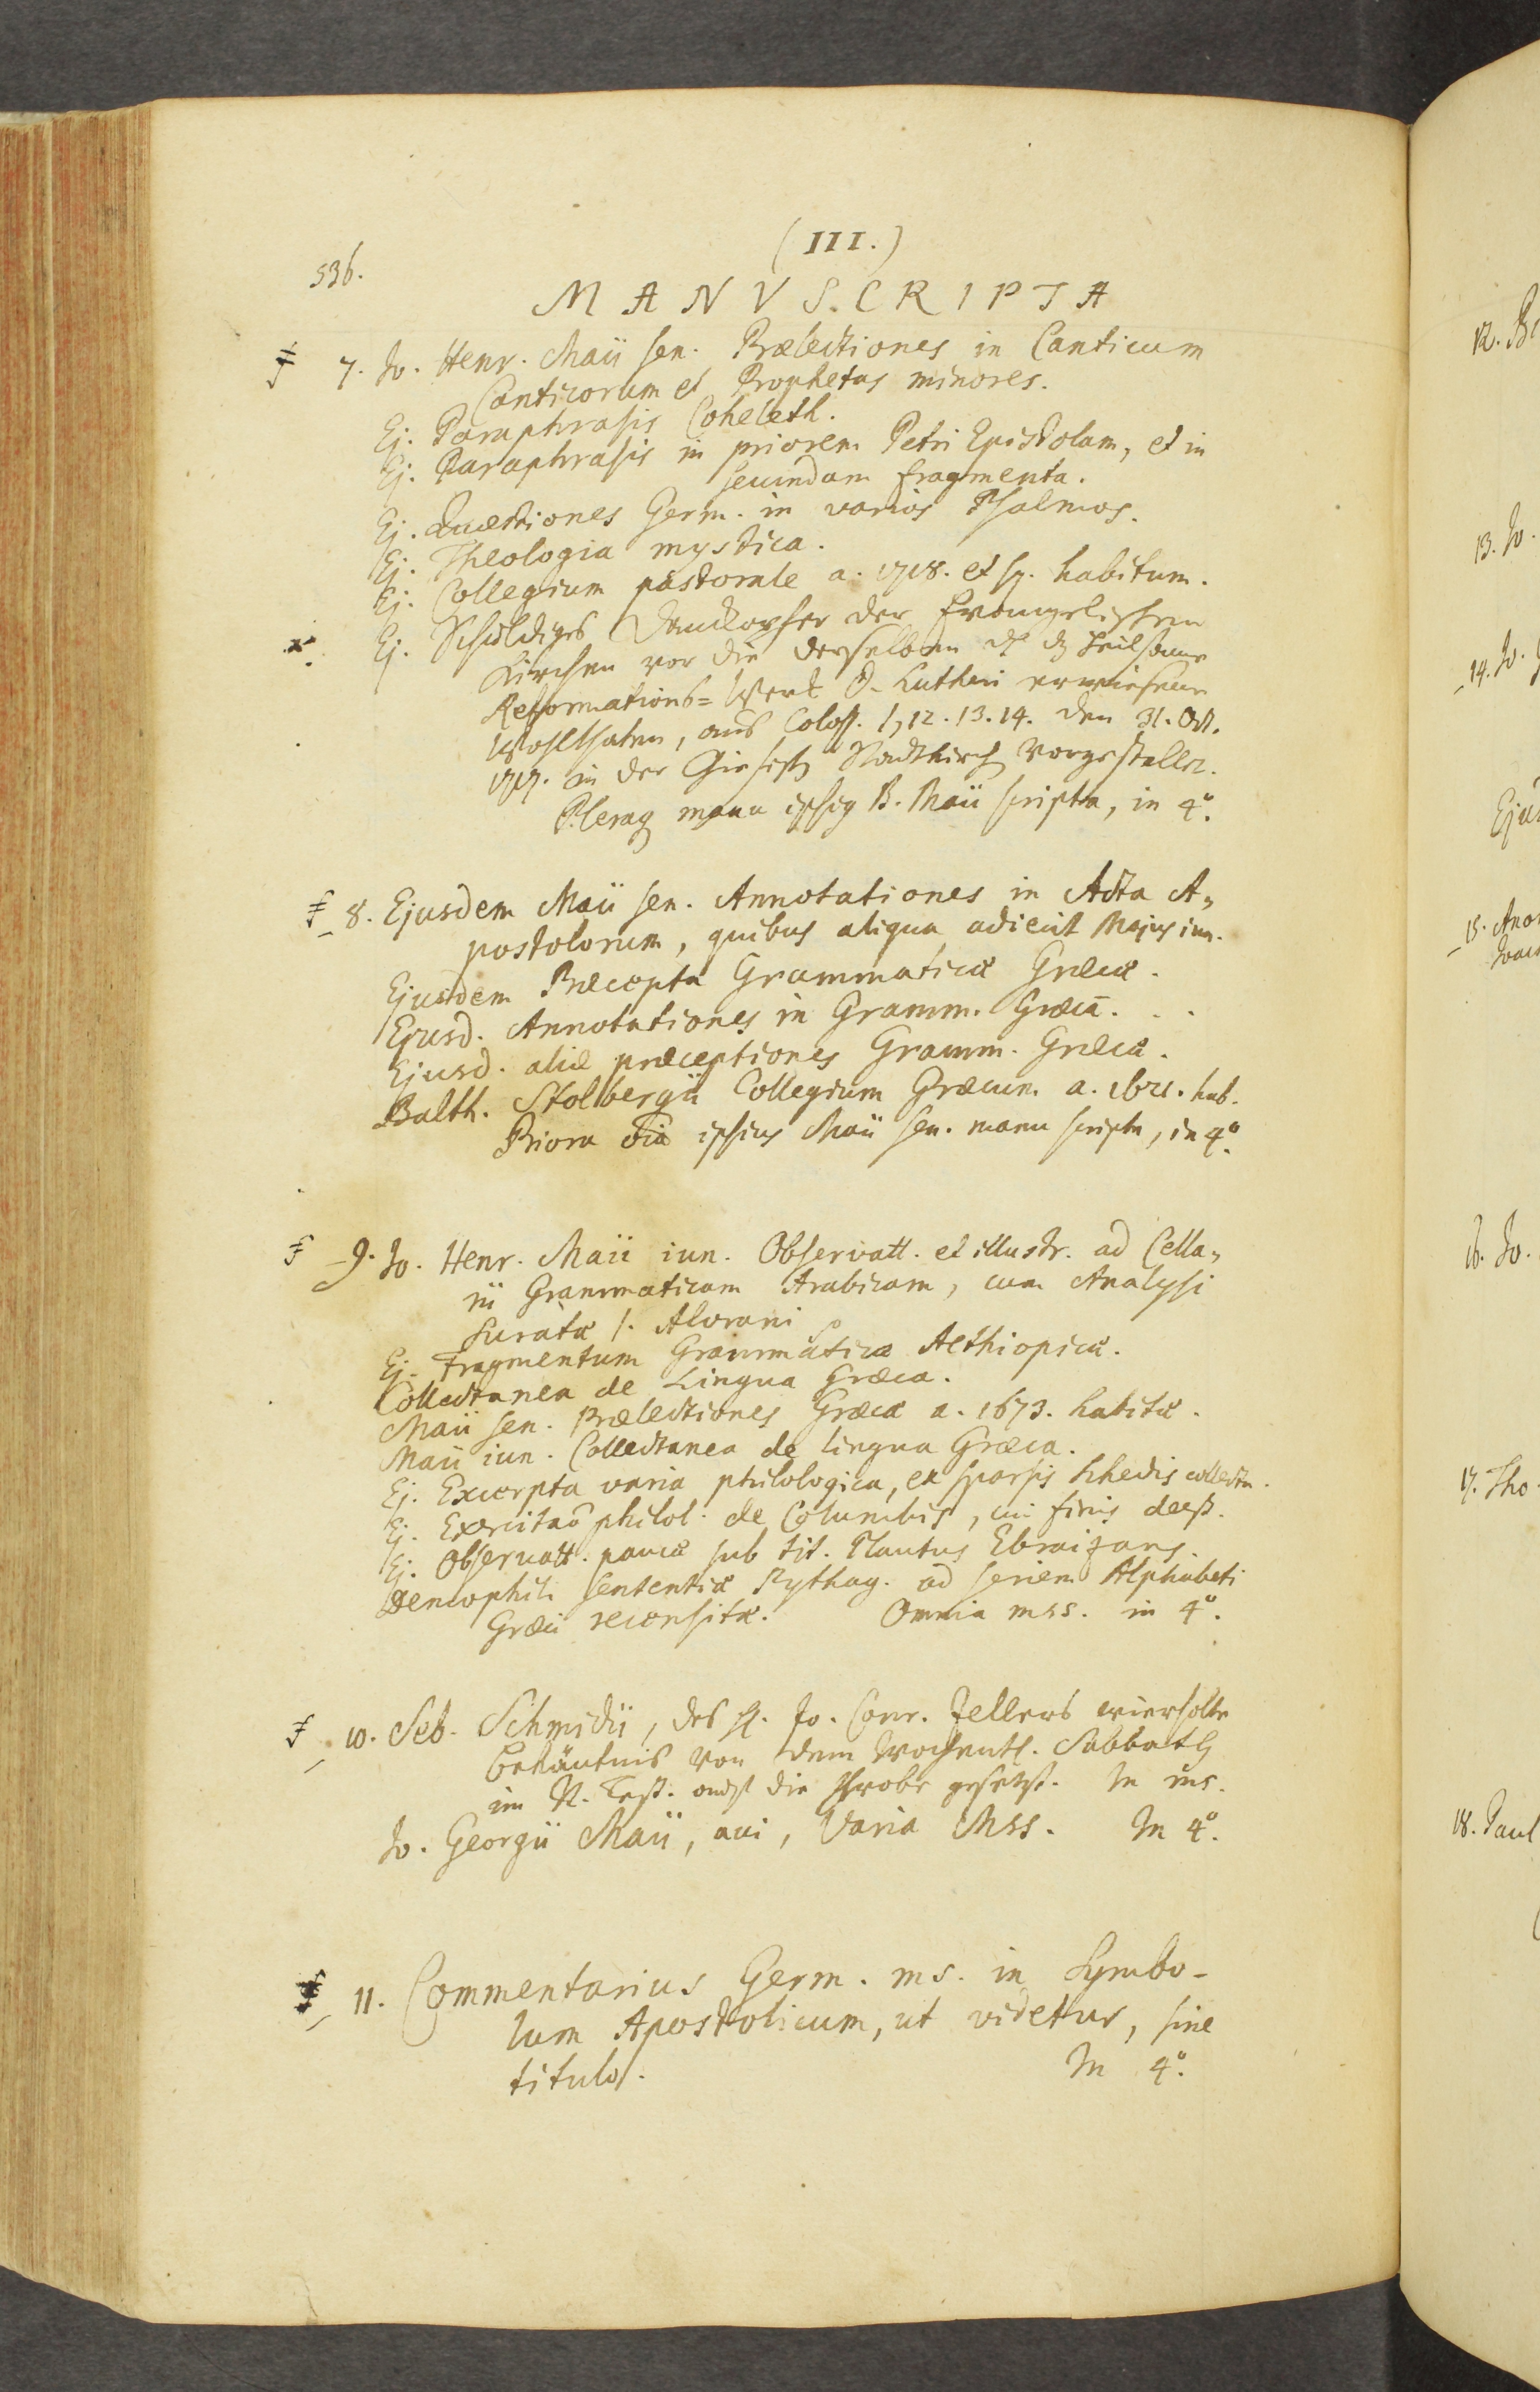 (III.)
536.
MANVSCRIPTA
7. Jo. Henr. Maii sen. Prælectiones in Canticum
Canticorum et Prophetas minores.
Ej. Paraphrasis Coheleth.
Ej. Paraphrasis in priorem Petri Epistolam, et in
secundam fragmenta.
Ej. Quæstiones Germ. in varios Psalmos.
Ej. Theologia mystica.
Ej. Collegium pastorale a. 1718. et sq. habitum.
Ej. Schuldiges Danckopfer der Evangelischen
Kirchen vor die derselben heilsame
Reformations=Werk D. Lutheri erwiesene
Wohlthaten, aus Coloss. 1, 12. 13. 14. den 31. Oct.
1717. in der Stadtkirch vorgestellet.
Pleraq manu ipsiq B. Maii scripta, in 4°.
8. Ejusdem Maii sen. Annotationes in Acta A-
postolorum, quibus aliqua adiecit Majus iun.
Ejusdem Præcepta Grammaticæ Græcæ.
Ejusd. Annotationes in Gramm. Græcā.
Ejusd. aliæ præceptiones Gramm. Græcæ.
Balth. Stolbergii Collegium Græcum a. 1671. hab.
Priora ōia ipsius Maii sen. manu scripta, in 4°.
9. Jo. Henr. Maii iun. Observatt. et illustr. ad Cella-
rii Grammaticam Arabicam, cum Analysi
Suratæ 1. Alcorani
Ej. Fragmentum Grammaticæ Aethiopicæ.
Collectanea de Lingua Græca.
Maii sen. Prælectiones Græcæ a. 1673. habitæ.
Maii iun. Collectanea de lingua Græca.
Ej. Excerpta varia philologica, ex sparsis schedis collecta.
Ej. Exercitaō philol. de Columbis, cui finis deest.
Ej. Observatt. paucæ sub tit. Plautus Ebraizans.
Demophili sententiæ Pythag. ad seriem Alphabeti
Græci recensitæ. Omnia mss. in 4°.
10. Seb. Schmidii, des H. Jo. Conr. Zellers
Bekäntnis von dem wochentl. Sabbath
im N. Test. auf die Probe gesetzt. In ms.
Jo. Georgii Maii, avi, Varia Mss. In 4°.
11. Commentarius Germ. ms. in Symbo-
lum Apostolicum, ut videtur, sine
titulo. In 4°.
12.
13. Jo.
14. Jo.
15.
16. Jo.
17. Tho
18. Paul